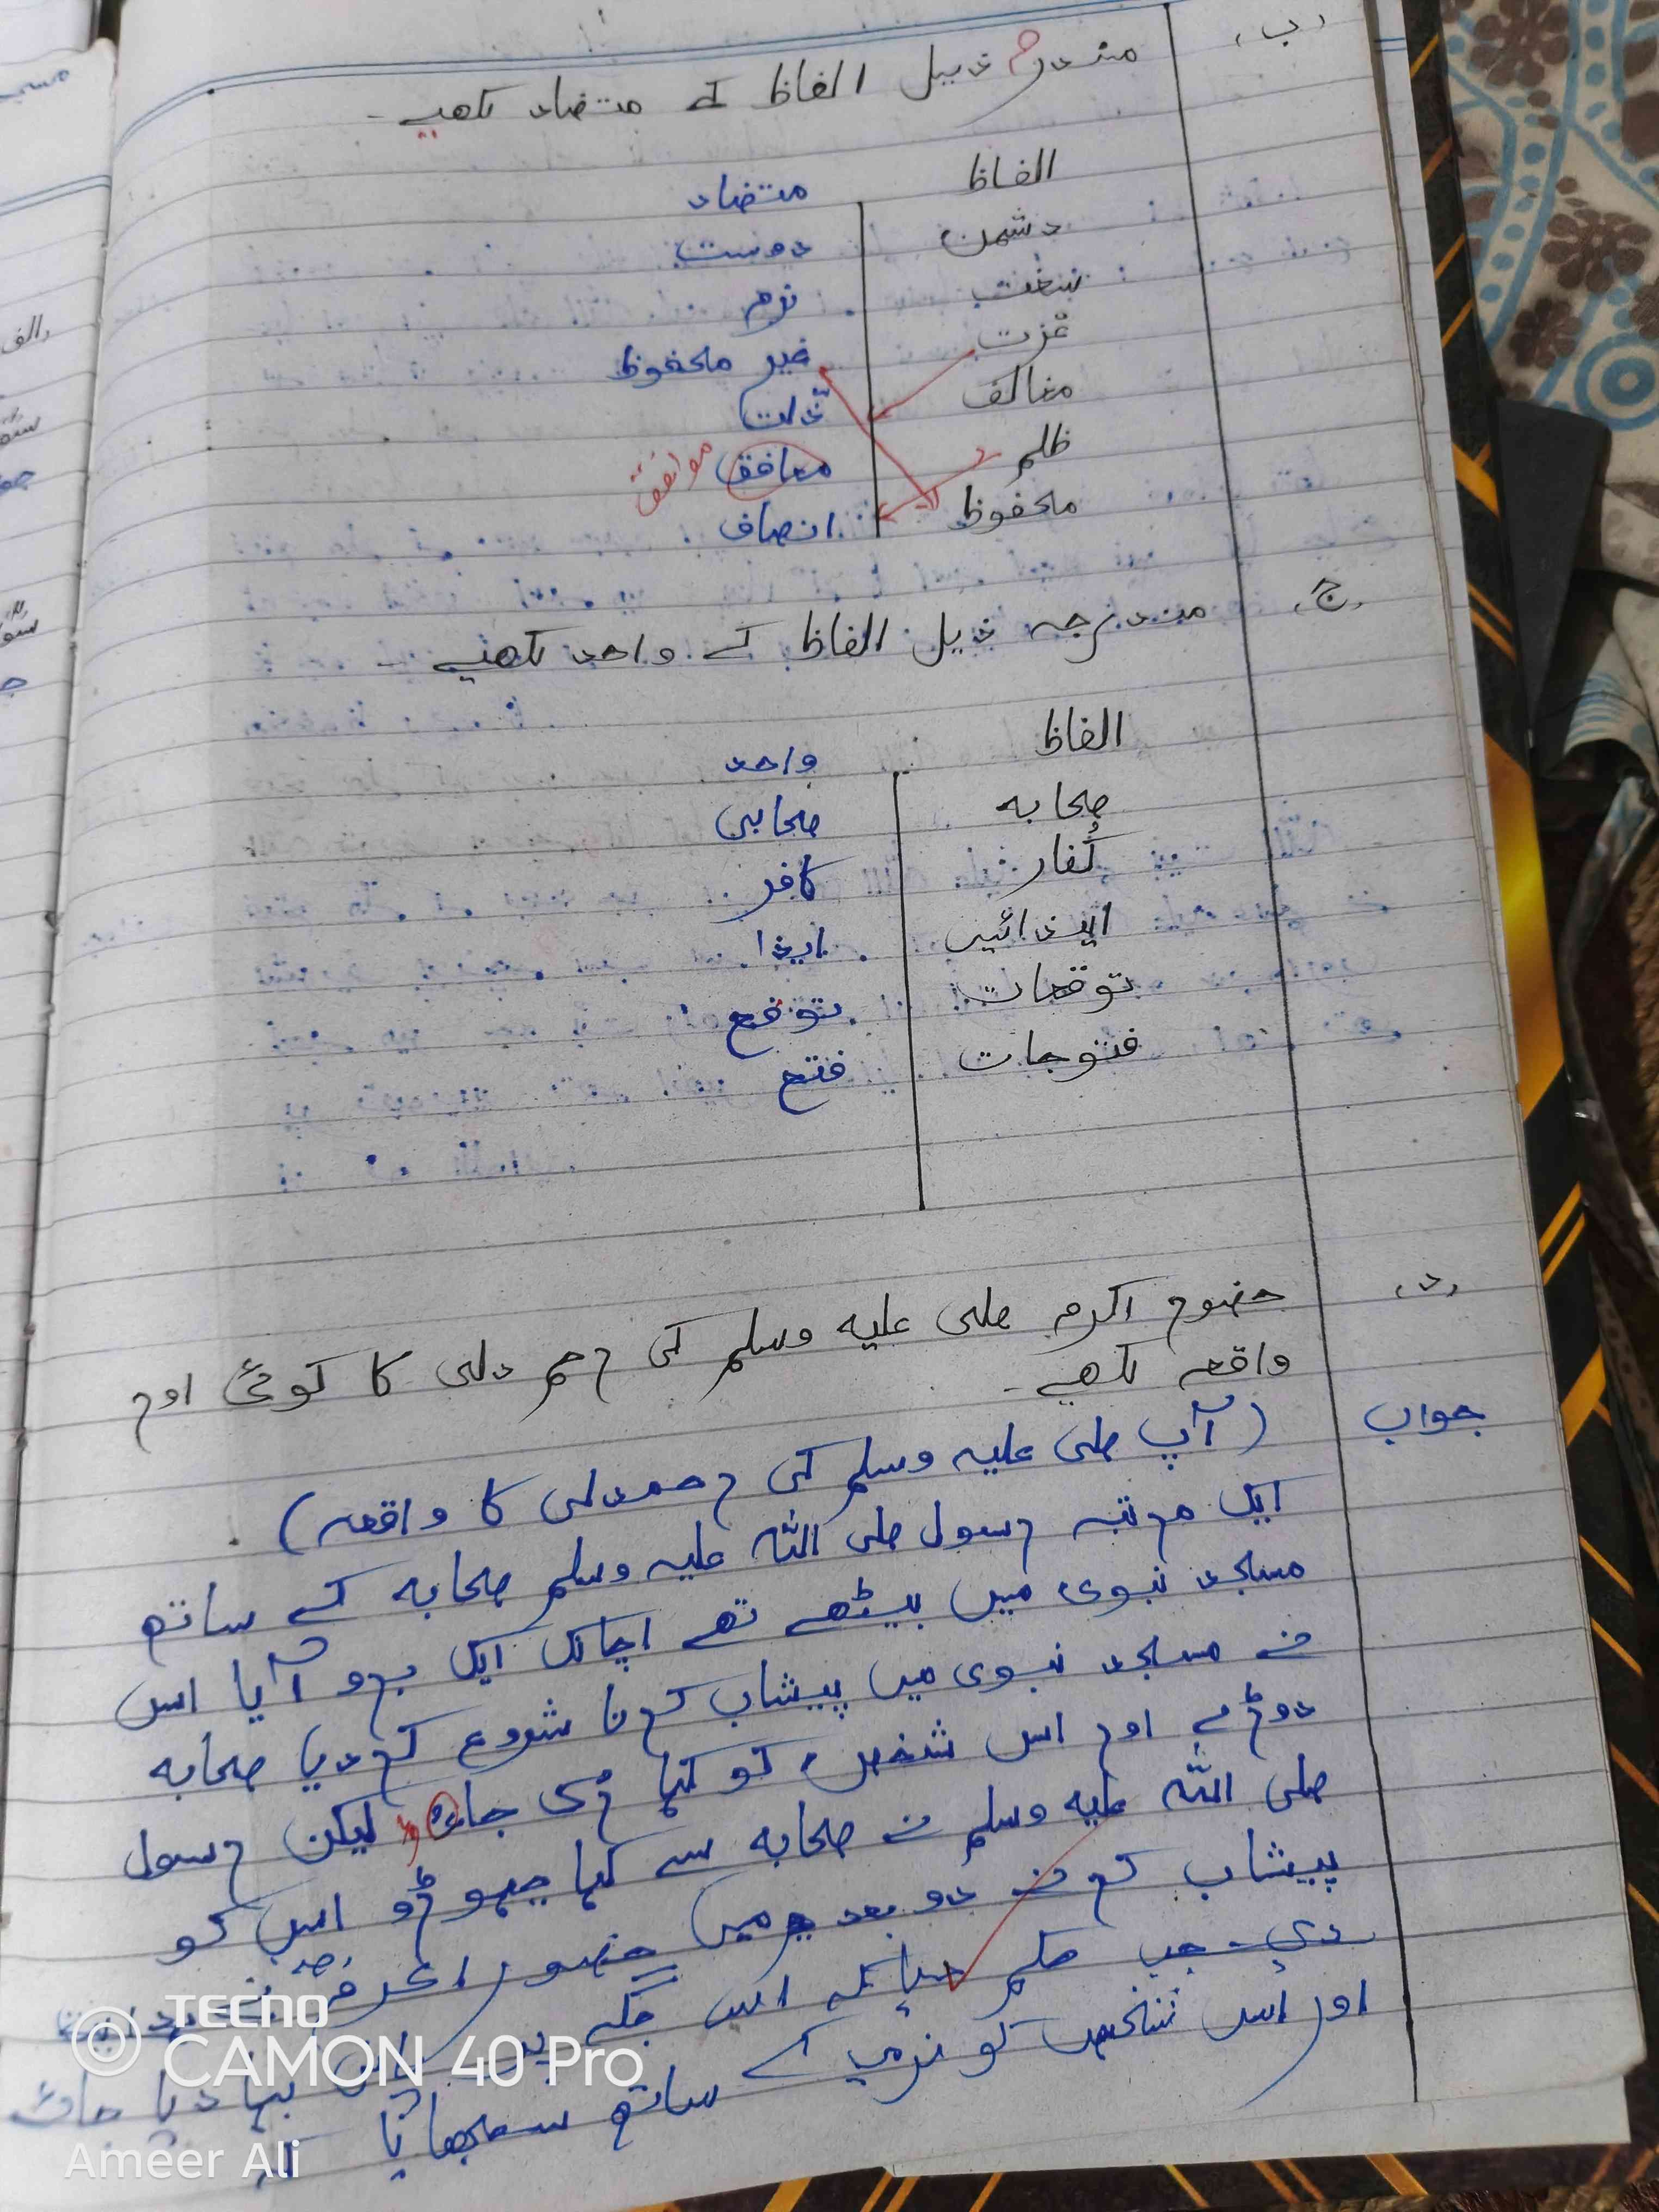 (ب)
مندرجہ ذیل الفاظ کے متضاد لکھیے ۔
الفاظ متضاد
دشمن دوست
سخت نرم
عزت غیر محفوظ
مخالف ذلت
ظلم معافق موافق
محفوظ انصاف
(ج)
مندرجہ ذیل الفاظ کے واحد لکھئیے ۔
الفاظ واحد
صحابہ صحابی
کُفار کافر
ایذائیں ایذا
توقعات توقع
فتوحات فتح
(د)
حضور اکرم صلی علیہ وسلم کی رحم دلی کا کوئی اور
واقعہ لکھیے ۔
جواب (آپ صلی علیہ وسلم کی رحمدلی کا واقعہ)
ایک مرتبہ رسول صلی اللہ علیہ وسلم صحابہ کے ساتھ
مسجد نبوی میں بیٹھے تھے اچانک ایک بدو آیا اس
نے مسجد نبوی میں پیشاب کرنا شروع کردیا صحابہ
دوڑے اور اس شخص کو کہا رک جاؤ لیکن رسول
صلی اللہ علیہ وسلم نے صحابہ سے کہا چھوڑو اس کو
پیشاب کرنے دو بعد میں حضور اکرم نے
دی ۔ جب حکم اس جگہ پر پانی بہا دیا جائے
اور اُس شخص کو نرمی کے ساتھ سمجھایا کہ
والف
TECNO
CAMON 40 Pro
Ameer Ali